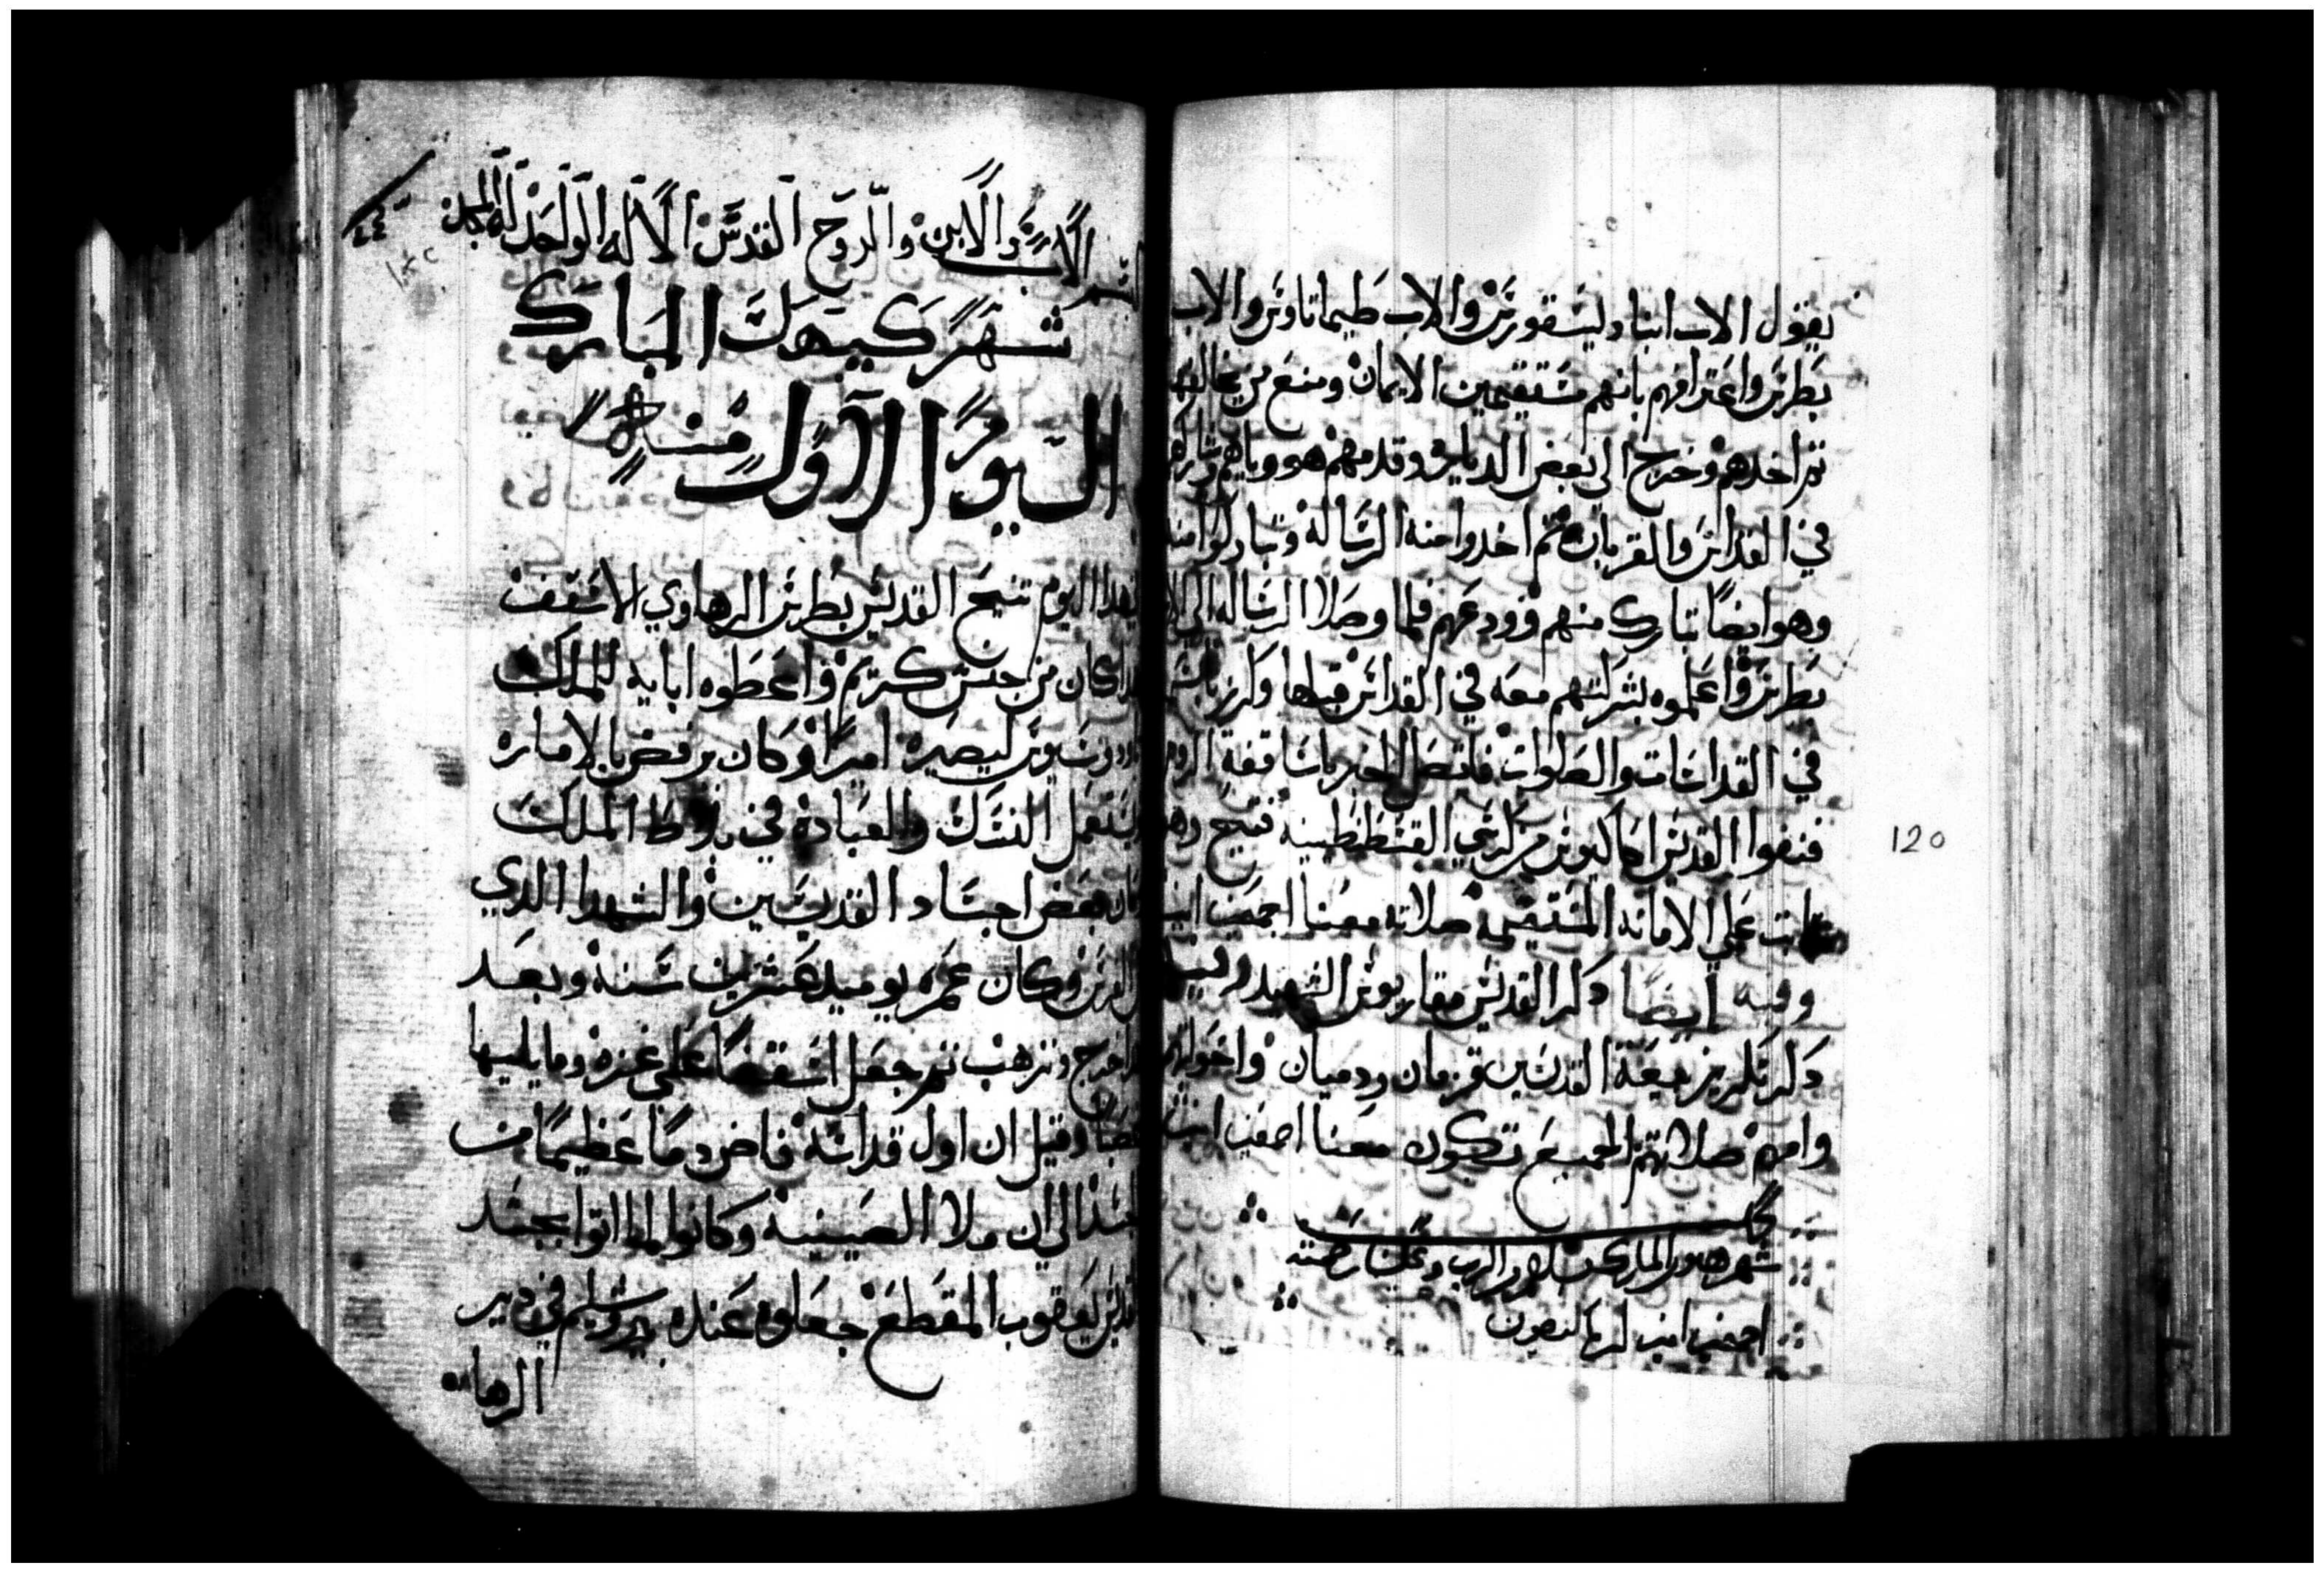 يقول الاب انبا ديسقورس والاب طيماتاوس والاب
بطرس واعترافهم بانهم مستقيمين الايمان ومنع من يخالفها
ثم اخدهم وخرج الي بعض الديارة وقدمهم هو وياهم
في القداس والقربان ثم اخدوا منه الرسالة وتباركوا منه
وهو ايضا تبارك منهم وودعهم فلما وصلا الرسالة الي الاب
بطرس واعلموه بشركتهم معه في القداس قبلها وكرز
في القداسات والصلوات فاتصل الخبر باساقفة الروم
فنفوا القديس اكاكيوس من كرسي القسطنطينية فتيح وهو
تابت علي الامانه المستقيمه صلاته معنا اجمعين امين
وفيه ايضا دكر القديس مقاريوس الشهيد وفيه
دكر تكريز بيعة القديسين قزمان ودميان واخواتهم
وامهم صلاتهم الجميع تكون معنا اجمعين امين
كمل
شهر هتور المبارك بسلام من الرب
اجمعين امين كيرياليصون
120
٤٤
بسم الاب والابن والروح القدس الاله الواحد له المجد
شهر كيهك المبارك
اليوم الاول منه
في هدا اليوم تنيح القديس بطرس الرهاوي الاسقف
هدا كان من جنس كريم واعطوه ابايه للملك
تاودوسيوس ليصيره اميرا وكان يرفض بالاماره
ويستعمل النسك والعباده في بلاط الملك
وكان بعض اجساد القديسين والشهدا الدي
الفرس وكان عمره يوميد عشرين سنه وبعد
هدا خرج وترهب تم جعل اسقفا علي غزه وما يليها
غصبا وقيل ان اول قداسه فاض دما عظيما من
الجسد الي ان ملا الصينية وكانوا لما اتوا بجسد
القديس يعقوب المقطع جعلوه عنده في دير
الرها